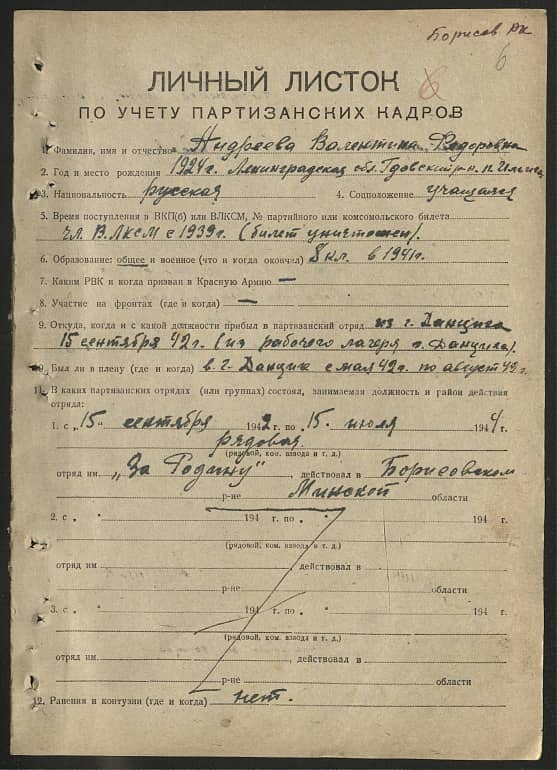 Борисов РК
6
6
ЛИЧНЫЙ ЛИСТОК
ПО УЧЕТУ ПАРТИЗАНСКИХ КАДРОВ
1. Фамилия, имя и отчество Андреева Валентина Федоровна
2. Год и место рождения 1924 г. Ленинградская обл. Гдовский р-н
3. Национальность русская 4. Соцположение учащаяся
5. Время поступления в ВКП(б) или ВЛКСМ, № партийного или комсомольского билета
чл. ВЛКСМ с 1939 г. (билет уничтожен).
6. Образование: общее и военное (что и когда окончил) 8 кл. в 1941 г.
7. Каким РВК и когда призван в Красную Армию —
8. Участие на фронтах (где и когда) —
9. Откуда, когда и с какой должности прибыл в партизанский отряд из г. Данцига
15 сентября 42 г. (из рабочего лагеря г. Данцига).
10. Был ли в плену (где и когда) в г. Данциг с мая 42 г. по август 42 г.
11. В каких партизанских отрядах (или группах) состоял, занимаемая должность и район действия
отряда:
1. с „15" сентября 1942 г. по „15" июля 1944 г.
рядовая
(рядовой, ком. взвода и т. д.)
отряд им. „За Родину", действовал в Борисовском
р-не Минской области
2. с " 194 г. по " 194 г.
(рядовой, ком. взвода и т. д.)
отряд им. , действовал в
р-не области
3. с " 194 г. по " 194 г.
(рядовой, ком. взвода и т. д.)
отряд им. , действовал в
р-не области
12. Ранения и контузии (где и когда) нет.